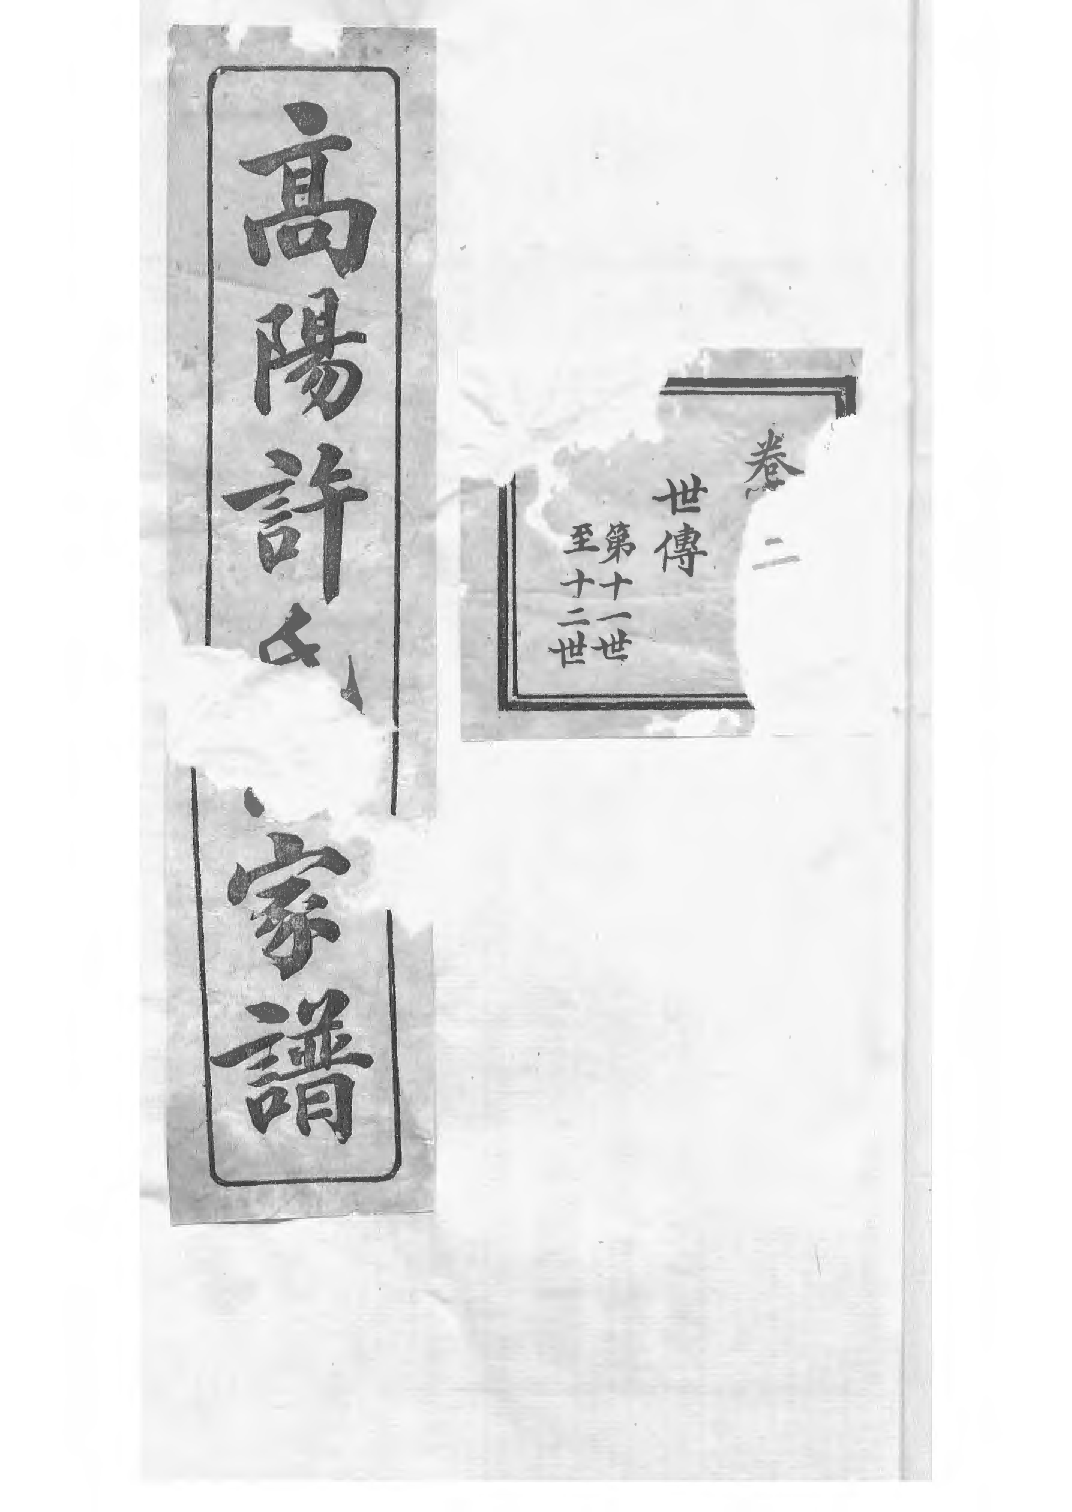 高陽許氏家譜
卷二
世傳
第十一世
至十二世